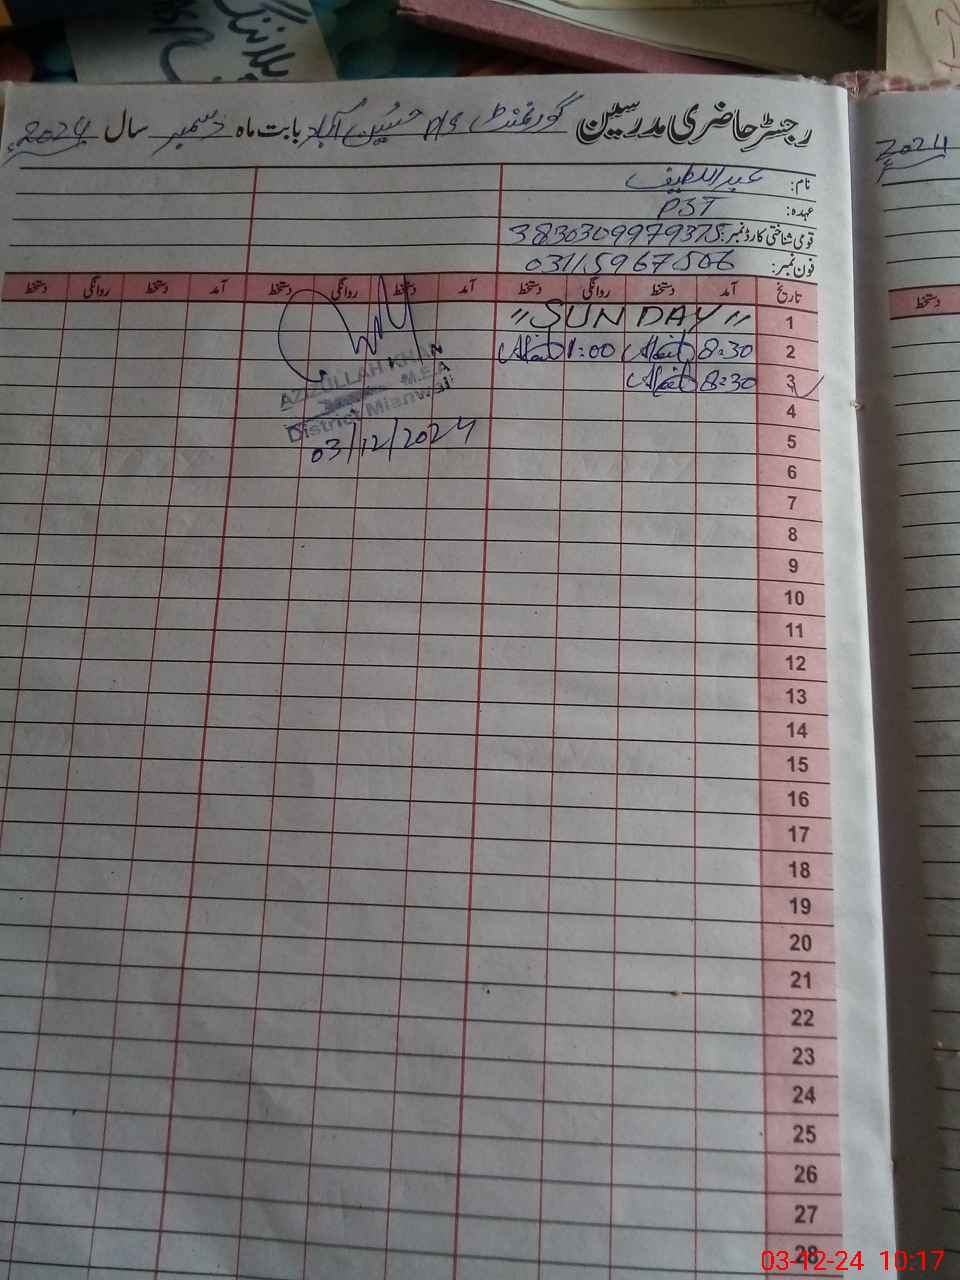 رجسٹر حاضری مدرسین گورنمنٹ P/S حسین آباد بابت ماہ دسمبر سال 2024ء
2024ء
نام: عبد اللطیف
عہدہ: PST
قومی شناختی کارڈ نمبر: 3830309979375
فون نمبر: 03115967506
تاریخ آمد دستخط روانگی دستخط آمد دستخط روانگی دستخط آمد دستخط روانگی دستخط
دستخط
1 "SUNDAY"
2 8:30 1:00
3 8:30
AZIZULLAH KHAN
M.E.A
District Mianwali
03/12/2024
4
5
6
7
8
9
10
11
12
13
14
15
16
17
18
19
20
21
22
23
24
25
26
27
28
03-12-24 10:17